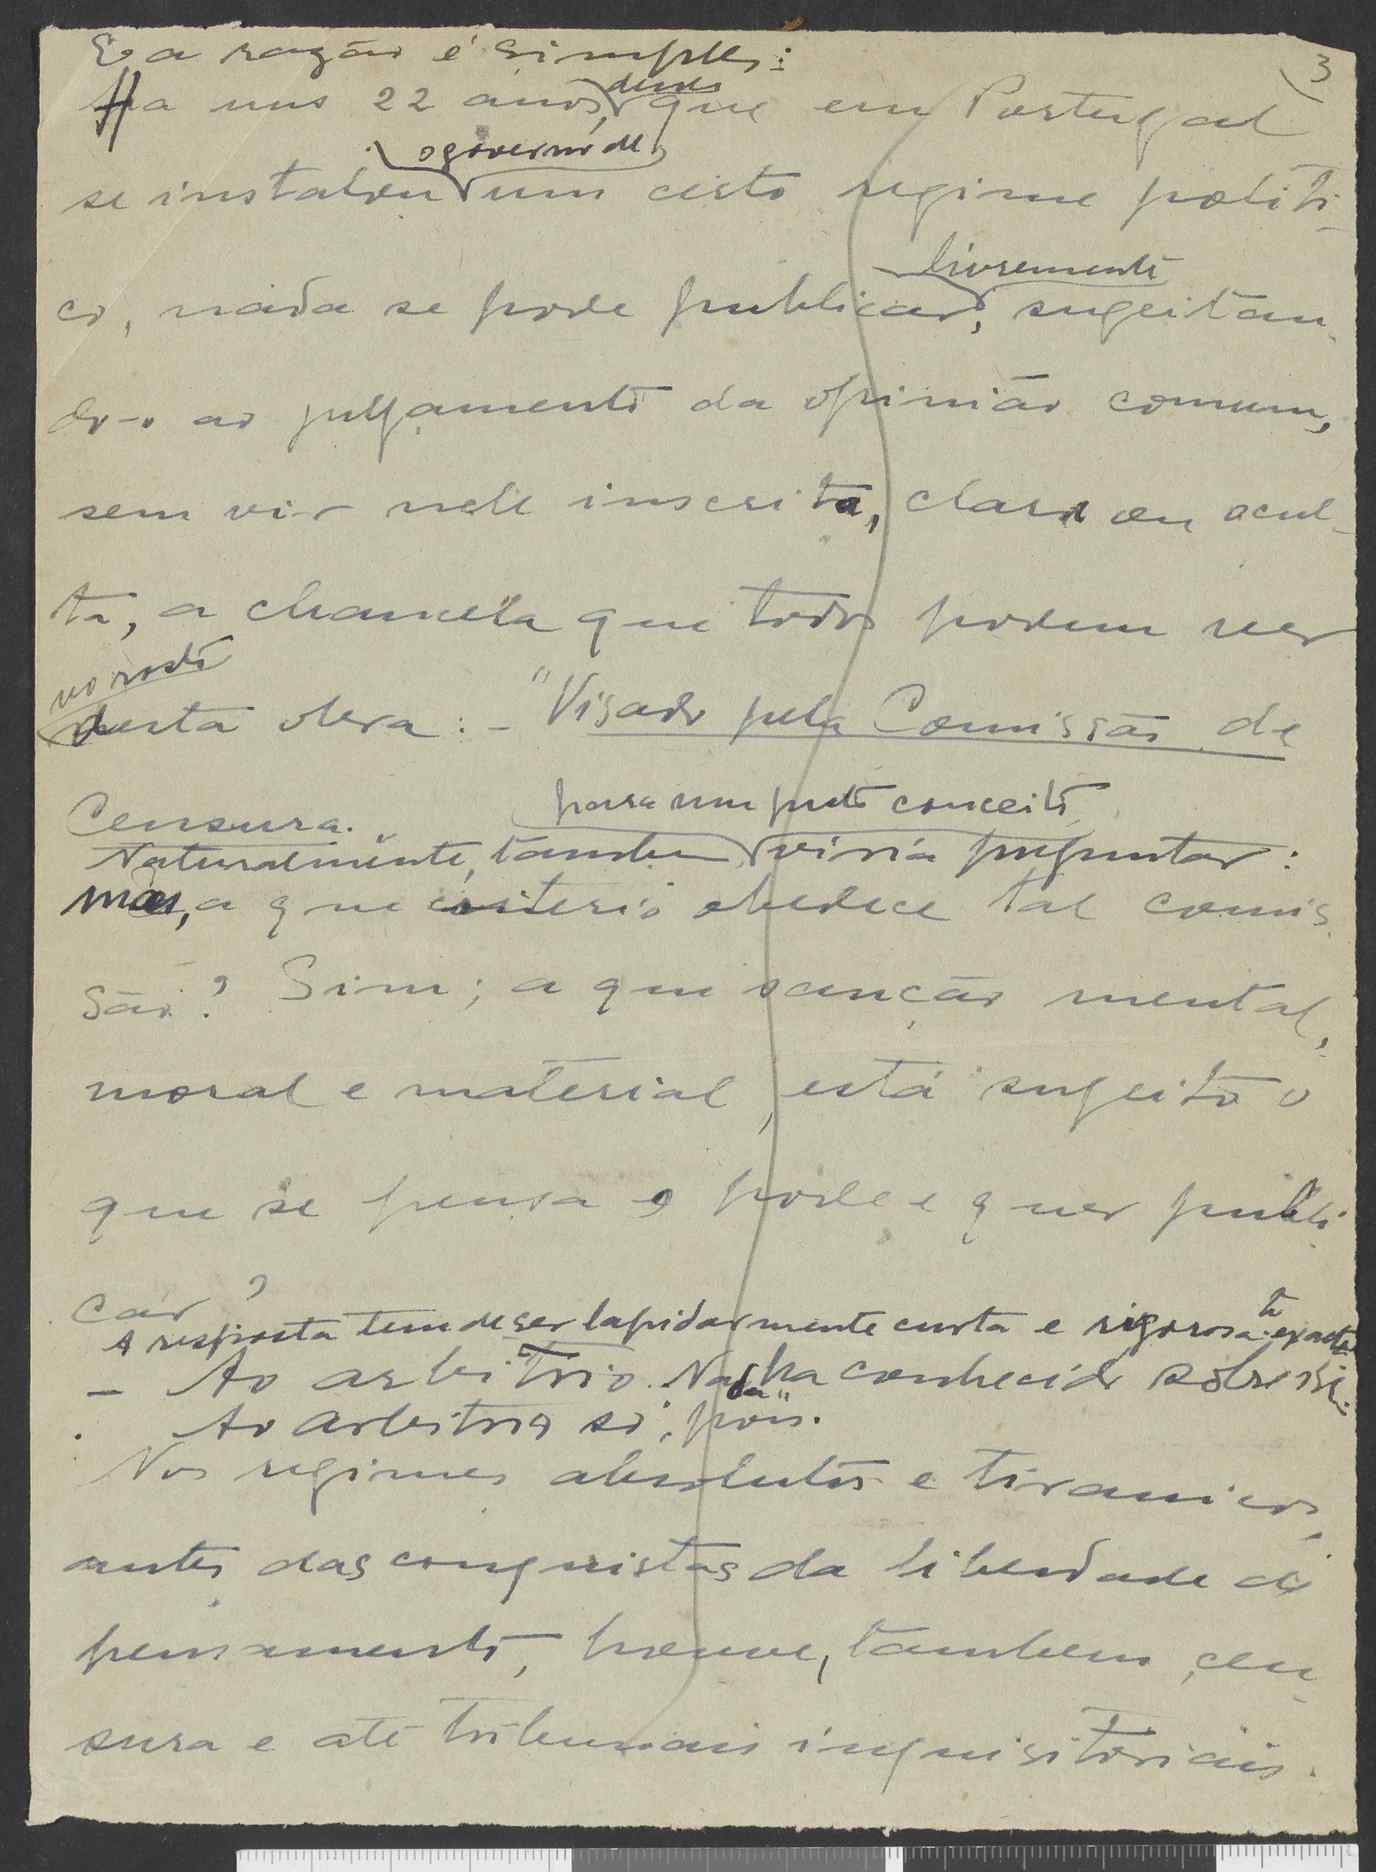 3
E a razão é simples:
Ha uns 22 anos, desde que em Portugal
se instalou o governo de um certo regime politi-
co, nada se pode publicar livremente, sugeitan-
do-o ao julgamento da opinião comum,
sem vir nele inscrita, clara ou ocul-
ta, a chancela que todos podem ver
no rosto desta obra: - "Visado pela Comissão de
Censura.
Naturalmente, tambem viria para um justo conceito preguntar:
mas, a que criterio obedece tal comis-
são? Sim; a que sanção mental,
moral e material, está sugeito o
que se pensa e pode e quer publi-
car?
A resposta tem de ser lapidarmente curta e rigorosa exacta
- Ao arbitrio. Nada ha conhecido sobre isso.
Ao arbitrio só, pois.
Nos regimes absolutos e tiranicos,
antes das conquistas da liberdade de
pensamento, houve, tambem, cen-
sura e até tribunais inquisitoriais.